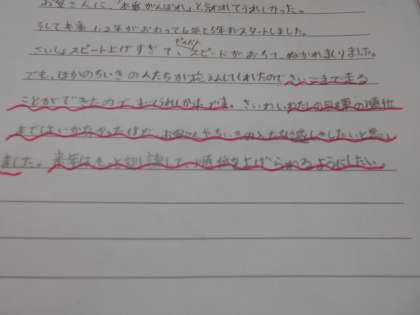 お父さんに、「本番がんばれ」と言われてうれしかった。
そして本番1、2年がおわって6年と5年がスタートしました。
さいしょスピード上げすぎて、とちゅうスピードがおちて、ぬかれまくりました。
でも、ほかのちいきの人たちがおうえんしてくれたのでさいごまで走る
ことができたので、うれしかったです。さいわい、わたしの目標の順位
まではいかなかったけど、お父さんやちいきの人たちに感しゃしたいと思い
ました。来年はもっと練習して、順位を上げられるようにしたい。